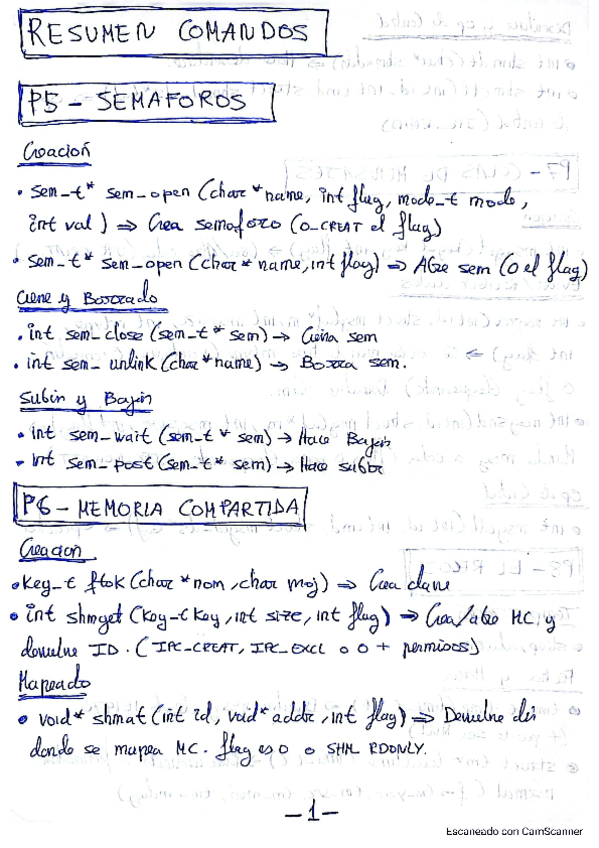 RESUMEN COMANDOS
P5 - SEMAFOROS
Creación
• sem_t* sem_open (char *name, int flag, mode_t mode,
int val) ⇒ Crea semaforo (O_CREAT el flag)
• sem_t* sem_open (char *name, int flag) ⇒ Abre sem (0 el flag)
Cierre y Borrado
• int sem_close (sem_t* sem) → Cierra sem
• int sem_unlink (char *name) → Borra sem.
Subir y Bajar
• int sem_wait (sem_t* sem) → Hace Bajar
• int sem_post (sem_t* sem) → Hace subir
P6 - MEMORIA COMPARTIDA
Creacion
• key_t ftok (char *nom, char moj) ⇒ Crea clave
• int shmget (key_t key, int size, int flag) ⇒ Crea/abre MC, y
devuelve ID. (IPC_CREAT, IPC_EXCL o 0 + permisos)
Mapeado
• void* shmat (int id, void* addr, int flag) ⇒ Devuelve dir
donde se mapea MC. flag es 0 o SHM_RDONLY.
-1-
Escaneado con CamScanner